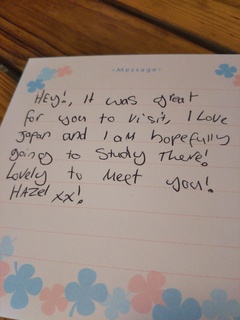 -Message-
HEY!, It was great
for you to visit, I Love
Japan and I am hopefully
going to Study There!
Lovely to meet you!
HAZel xx!